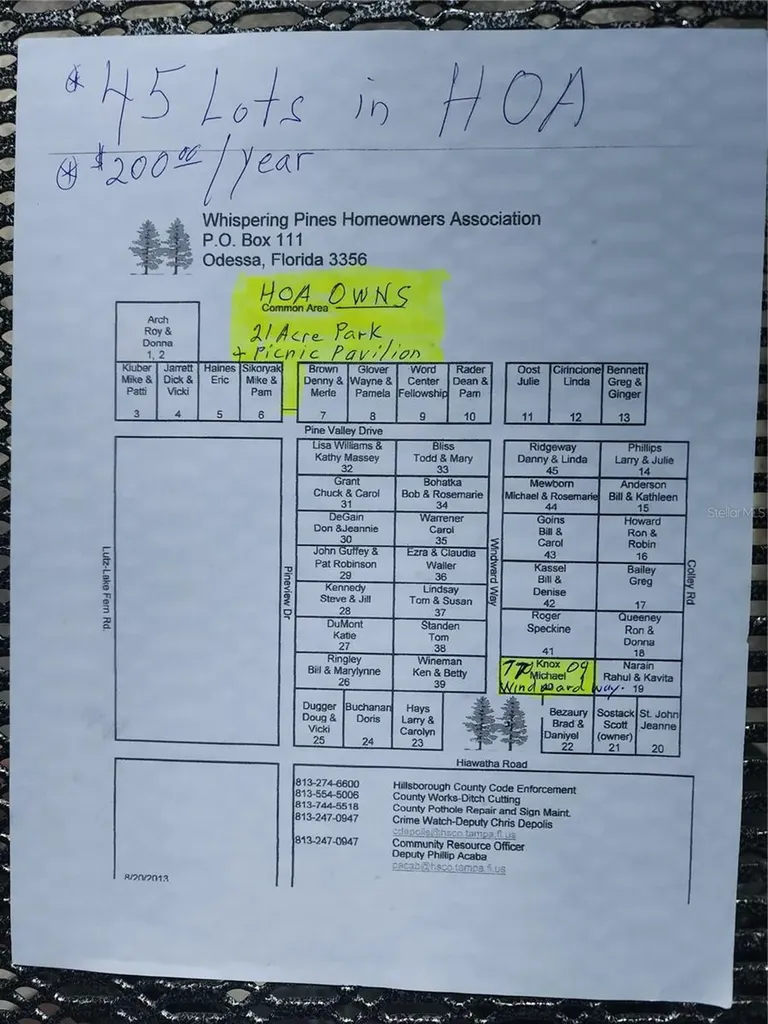 * 45 Lots in HOA
* $200.00/year
Whispering Pines Homeowners Association
P.O. Box 111
Odessa, Florida 3356
HOA OWNS
Common Area
21 Acre Park
+ Picnic Pavilion
Arch
Roy &
Donna
1, 2
Kluber
Mike &
Patti
3
Jarrett
Dick &
Vicki
4
Haines
Eric
5
Sikoryak
Mike &
Pam
6
Brown
Denny &
Merle
7
Glover
Wayne &
Pamela
8
Word
Center
Fellowship
9
Rader
Dean &
Pam
10
Oost
Julie
11
Cirincione
Linda
12
Bennett
Greg &
Ginger
13
Pine Valley Drive
Lisa Williams &
Kathy Massey
32
Bliss
Todd & Mary
33
Ridgeway
Danny & Linda
45
Phillips
Larry & Julie
14
Grant
Chuck & Carol
31
Bohatka
Bob & Rosemarie
34
Mewborn
Michael & Rosemarie
44
Anderson
Bill & Kathleen
15
DeGain
Don &Jeannie
30
Warrener
Carol
35
Goins
Bill &
Carol
43
Howard
Ron &
Robin
16
John Guffey &
Pat Robinson
29
Ezra & Claudia
Waller
36
Kassel
Bill &
Denise
42
Bailey
Greg
17
Kennedy
Steve & Jill
28
Lindsay
Tom & Susan
37
Roger
Speckine
41
Queeney
Ron &
Donna
18
DuMont
Katie
27
Standen
Tom
38
Ringley
Bill & Marylynne
26
Wineman
Ken & Betty
39
Knox
Michael
09
Windward Way.
Narain
Rahul & Kavita
19
Dugger
Doug &
Vicki
25
Buchanan
Doris
24
Hays
Larry &
Carolyn
23
Bezaury
Brad &
Daniyel
22
Sostack
Scott
(owner)
21
St. John
Jeanne
20
Lutz-Lake Fern Rd.
Pineview Dr
Windward Way
Colley Rd
Hiawatha Road
813-274-6600 Hillsborough County Code Enforcement
813-554-5006 County Works-Ditch Cutting
813-744-5518 County Pothole Repair and Sign Maint.
813-247-0947 Crime Watch-Deputy Chris Depolis
cdepolis@hsco.tampa.fl.us
813-247-0947 Community Resource Officer
Deputy Phillip Acaba
pacab@hsco.tampa.fl.us
8/20/2013
Stellar MLS